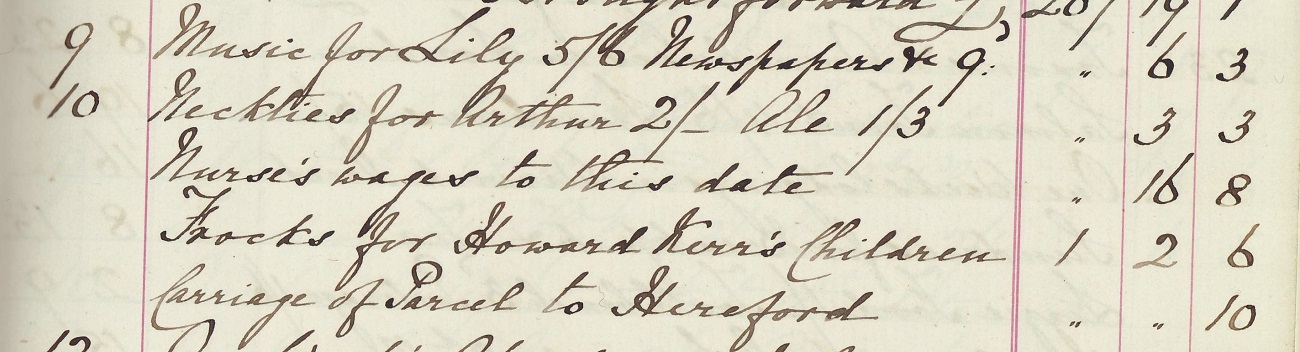 brought forward £ 201 19 1
9 Music for Lily 5/6 Newspapers &c 9d: " 6 3
10 Neckties for Arthur 2/- Ale 1/3 " 3 3
Nurse's wages to this date " 16 8
Frocks for Howard Kerr's Children 1 2 6
Carriage of Parcel to Hereford " " 10
12